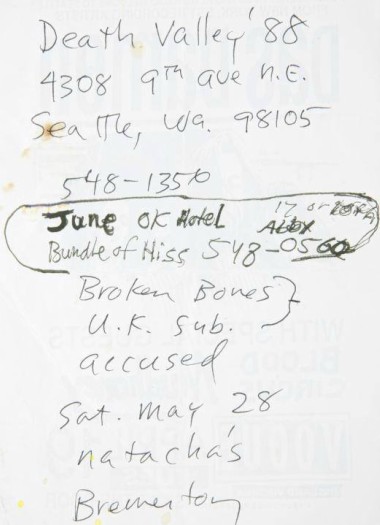 Death Valley '88
4308 9th ave N.E.
Seattle, Wa. 98105
548-1350
June OK Hotel 17 or
Bundle of Hiss 548-0560
Broken Bones }
U.K. Sub.
accused
Sat. may 28
natacha's
Bremerton